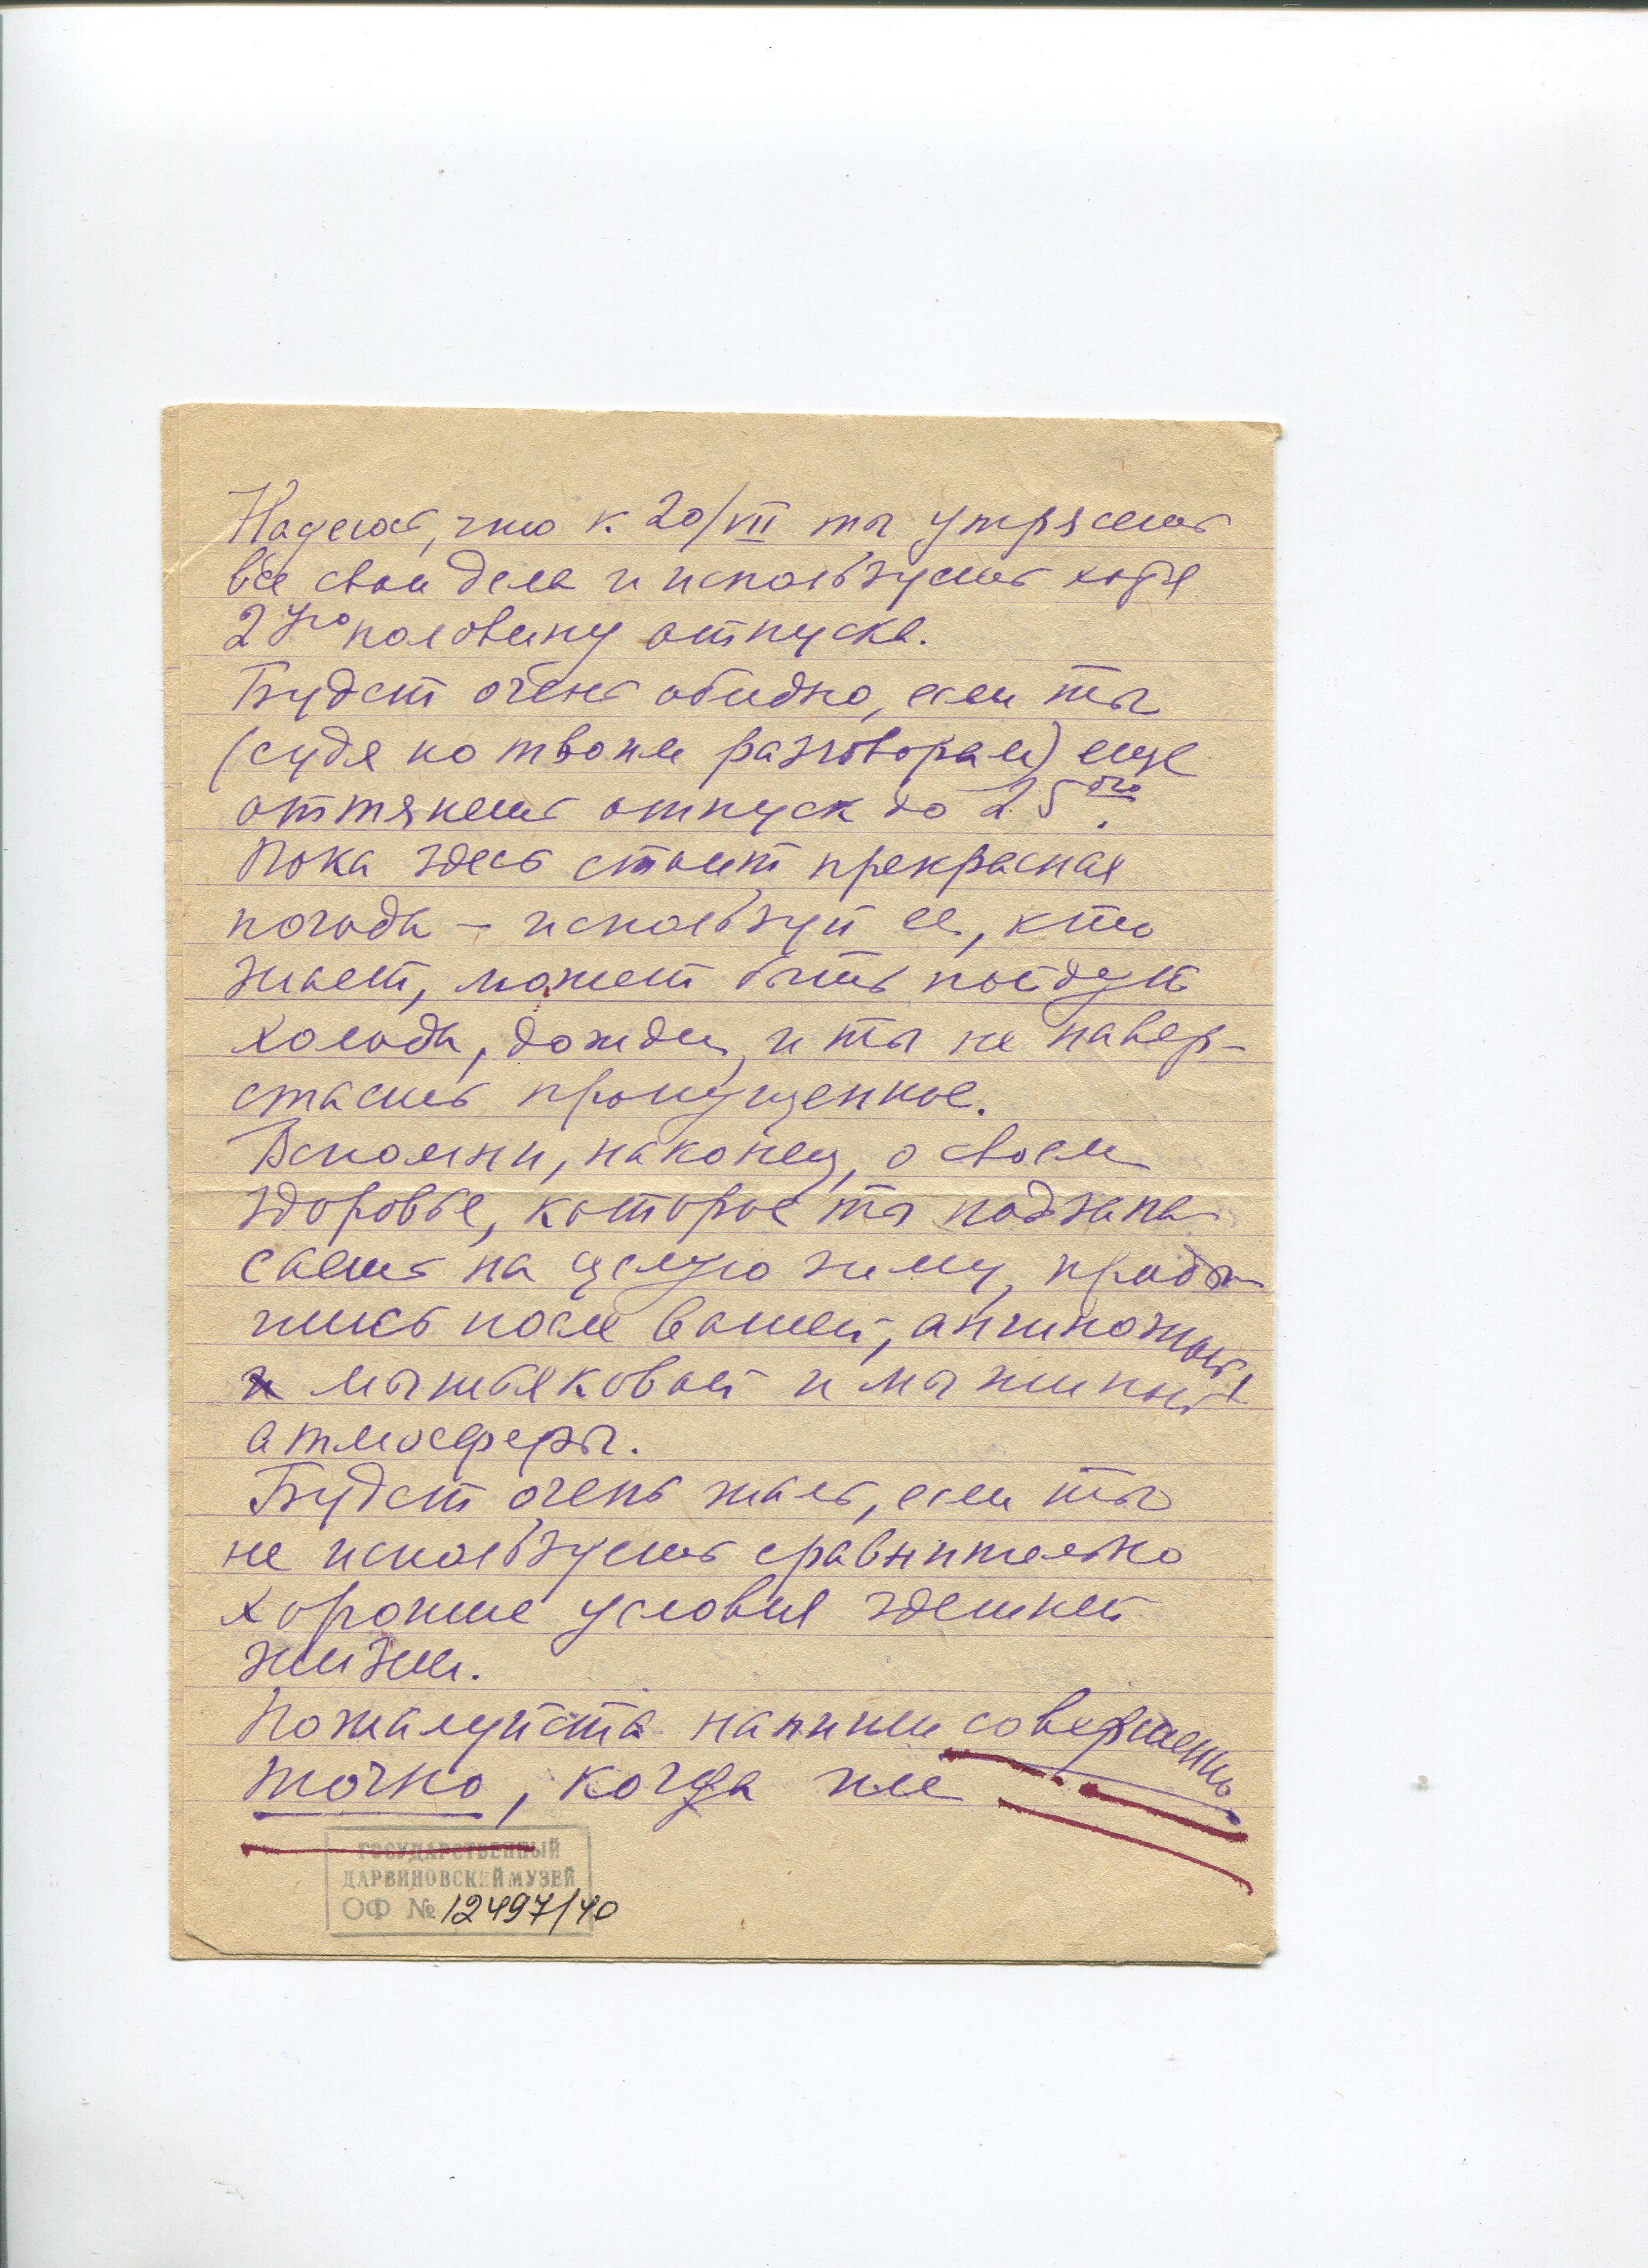 Надеюсь, что к 20/VII ты утрясешь
все свои дела и используешь хотя
2ую половину отпуска.
Будет очень обидно, если ты
(судя по твоим разговорам) еще
оттянешь отпуск до 25ого.
Пока здесь стоит прекрасная
погода – используй ее, кто
знает, может быть пойдут
холода, дожди, и ты не навер-
стаешь пропущенное.
Вспомни, наконец, о своем
здоровье, которое ты подзапа-
саешь на целую зиму, проды-
шись после вашей,
мышьяковой и машинной
атмосферы.
Будет очень жаль, если ты
не используешь сравнительно
хорошие условия здешней
жизни.
Пожалуйста напиши совершенно
точно, когда же
ГОСУДАРСТВЕННЫЙ
ДАРВИНОВСКИЙ МУЗЕЙ
ОФ № 12497/40